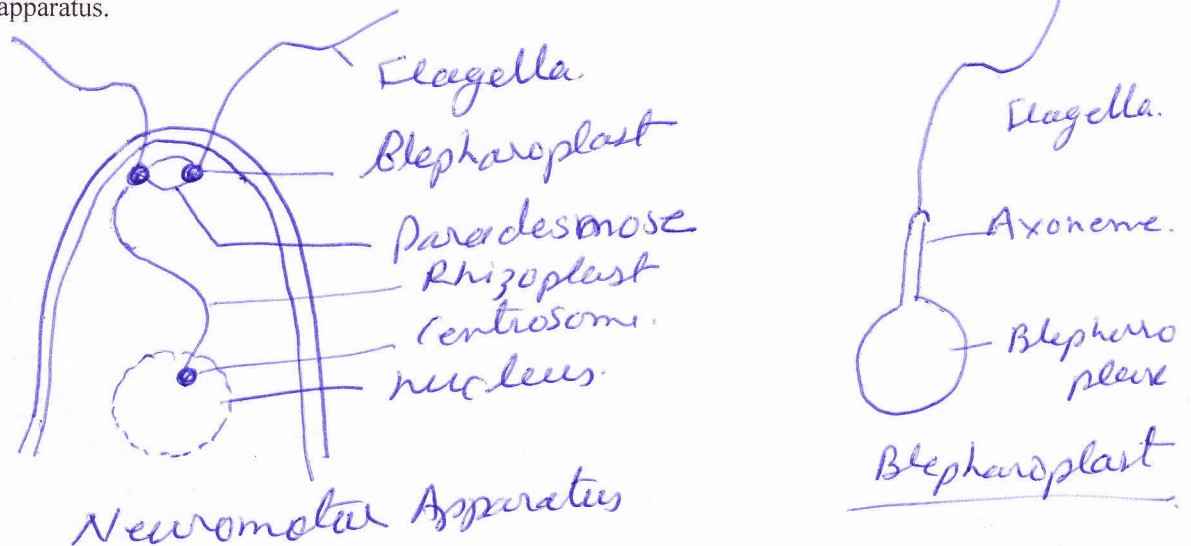 apparatus.
Flagella.
Blepharoplast
Paradesmose
Rhizoplast
Centrosome.
nucleus.
Neuromotor Apparatus
Flagella.
Axoneme.
Blepharoplast